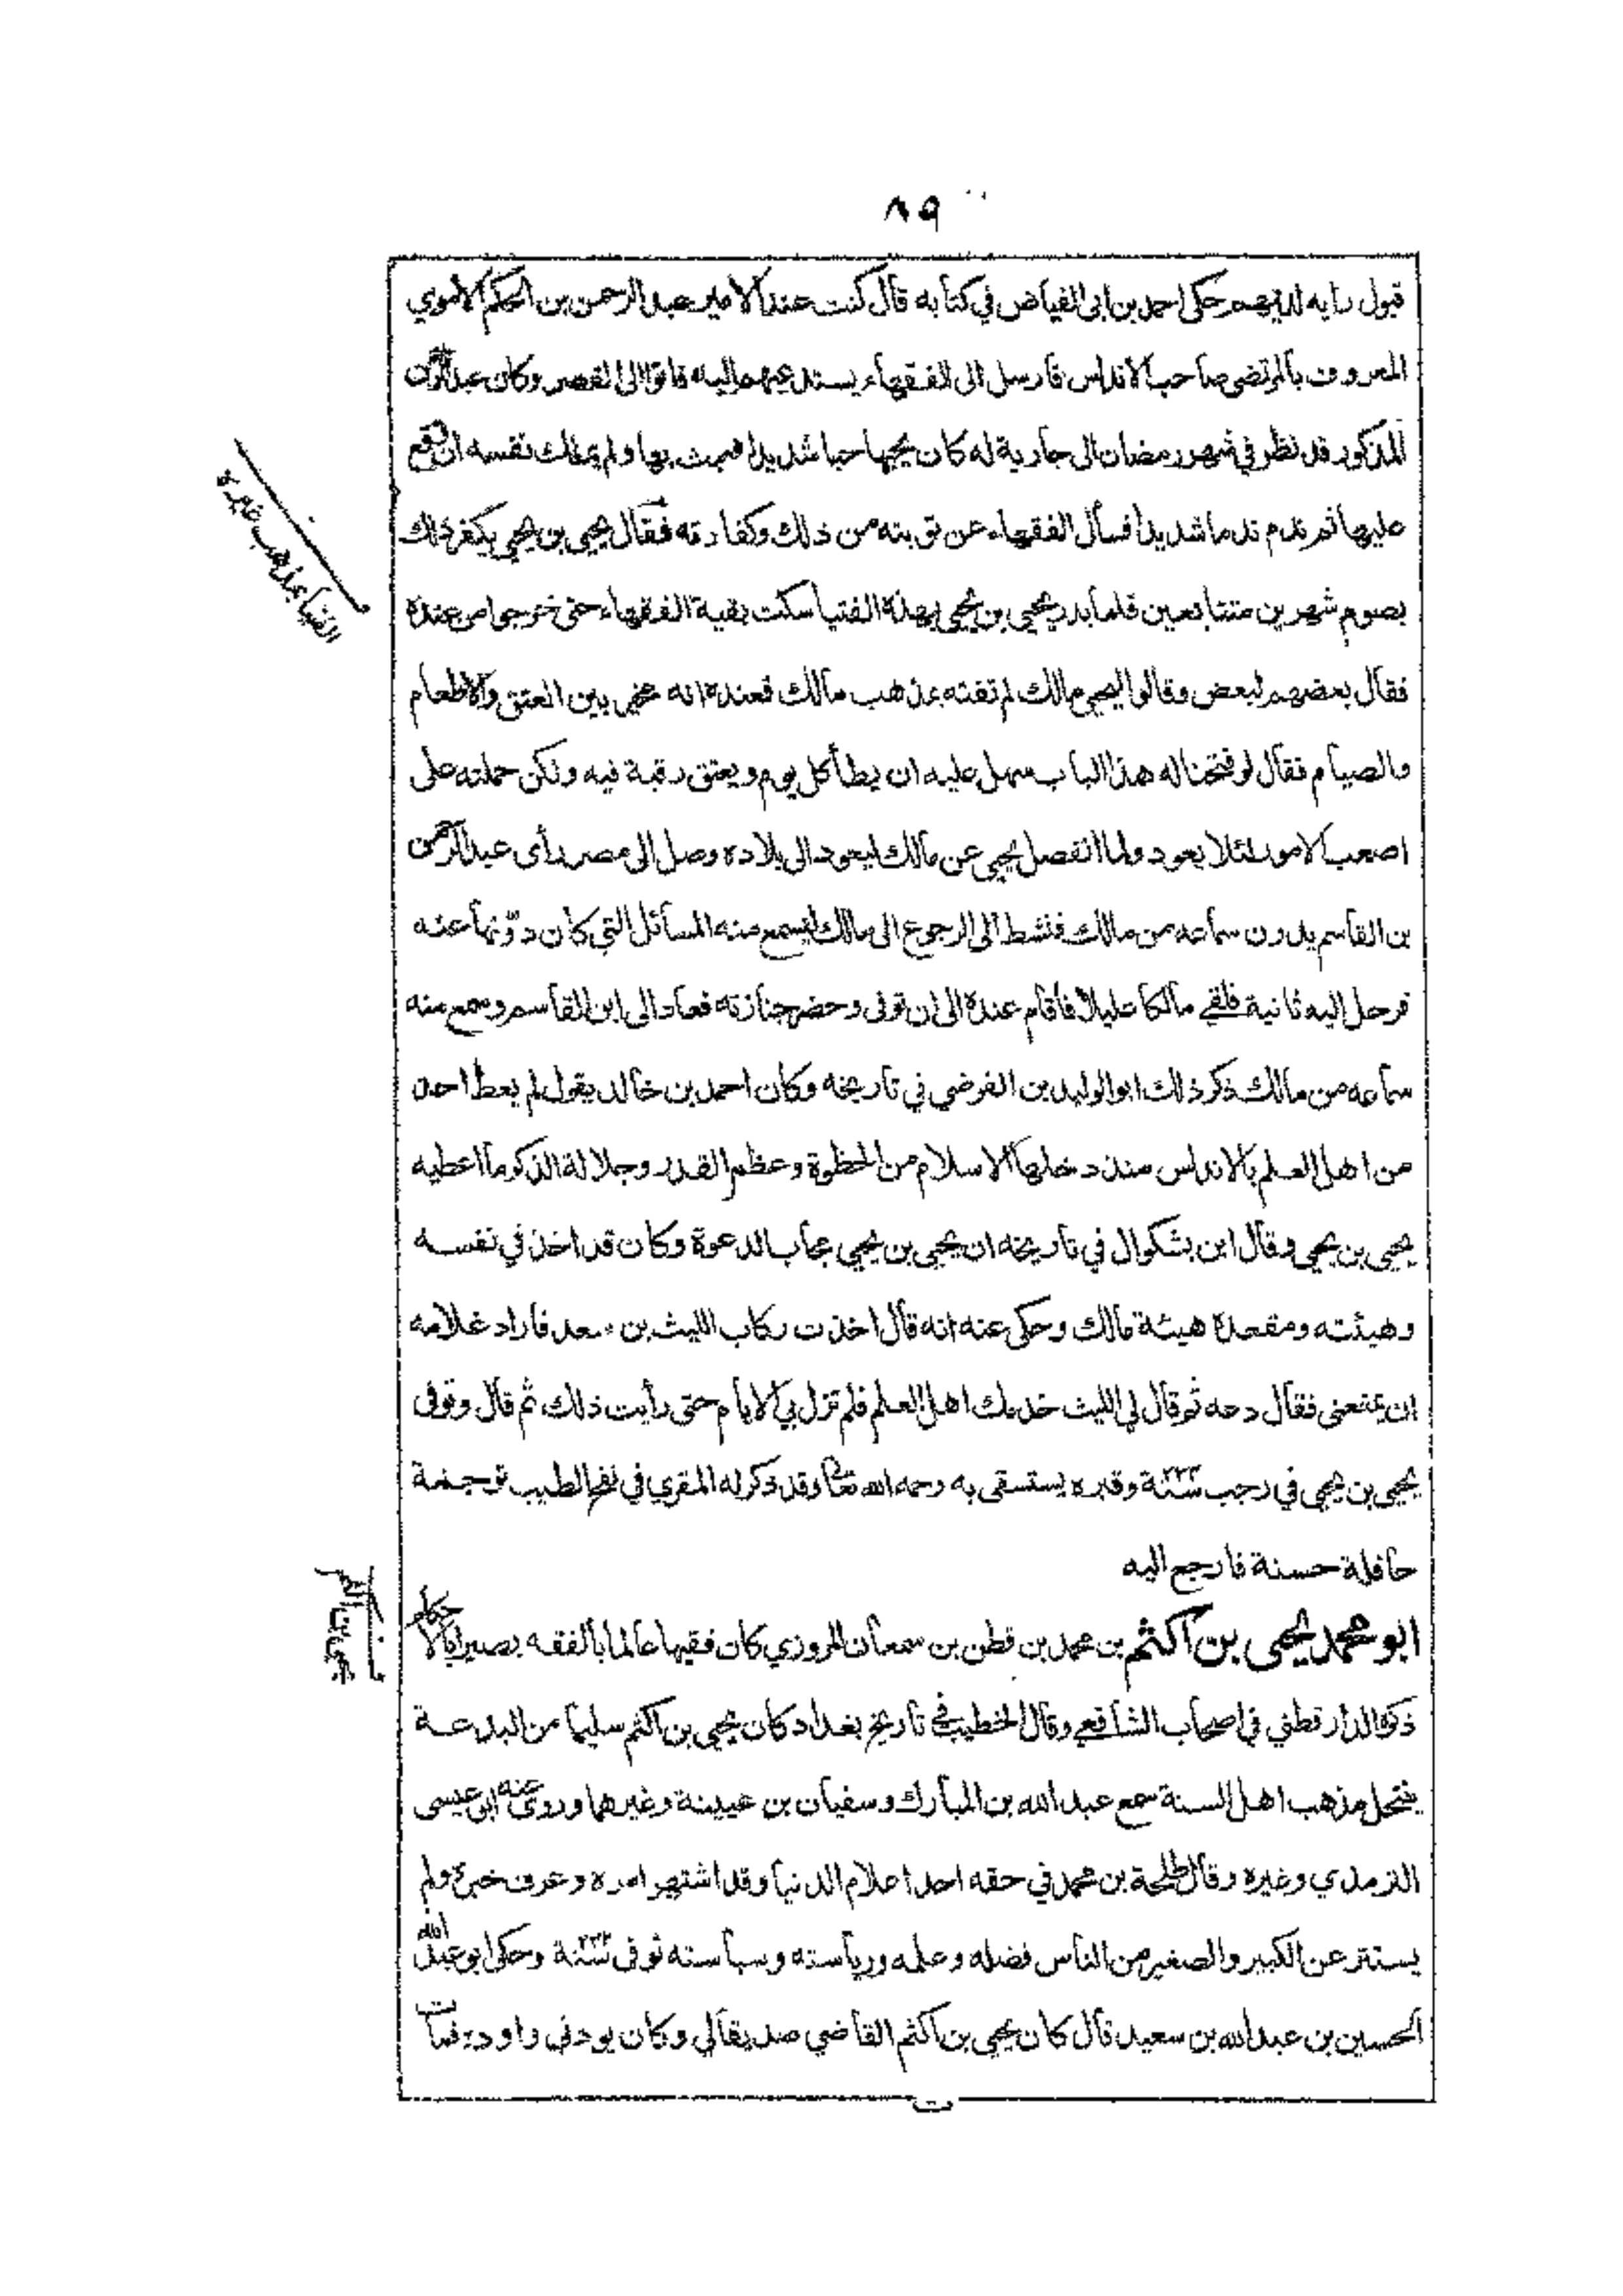 ٨٩
قبول رايه لديهم حكى احمد بن ابى الفياض في كتابه قال كنت عند الامير عبد الرحمن بن الحكم الاموي
المعروف بالمرتضى صاحب الاندلس فارسل الى الفقهاء يستدعيهم اليه فاتوا الى القصر وكان عبد الرحمن
المذكور قد نظر في شهر رمضان الى جارية له كان يحبها حبا شديدا فعبث بها ولم يملك نفسه ان وقع
عليها ثم ندم ندما شديدا فسأل الفقهاء عن توبته من ذلك وكفارته فقال يحيى بن يحيى يكفر ذلك
بصوم شهرين متتابعين فلما بدر يحيى بن يحيى بهذه الفتيا سكت بقية الفقهاء حتى خرجوا من عنده
فقال بعضهم لبعض وقالوا ليحيى مالك لم تفته بمذهب مالك فعنده انه مخير بين العتق والاطعام
والصيام فقال لو فتحنا له هذا الباب سهل عليه ان يطأ كل يوم ويعتق رقبة فيه ولكن حملته على
اصعب الامور لئلا يعود ولما انفصل يحيى عن مالك ليعود الى بلاده وصل الى مصر رأى عبد الرحمن
بن القاسم يدون سماعه من مالك فنشط الى الرجوع الى مالك ليسمع منه المسائل التي كان دونها عنه
فرحل اليه ثانية فلقي مالكا عليلا فأقام عنده الى ان توفى وحضر جنازته فعاد الى ابن القاسم وسمع منه
سماعه من مالك ذكر ذلك ابو الوليد بن الفرضي في تاريخه وكان احمد بن خالد يقول لم يعط احد
من اهل العلم بالاندلس منذ دخلها الاسلام من الحظوة وعظم القدر وجلالة الذكر ما اعطيه
يحيى بن يحيى وقال ابن بشكوال في تاريخه ان يحيى بن يحيى مجاب الدعوة وكان قد اخذ في نفسه
وهيئته ومقعده هيئة مالك وحكى عنه انه قال اخذت ركاب الليث بن سعد فاراد غلامه
ان يمنعنى فقال دعه ثم قال لي الليث خدمك اهل العلم فلم تزل بي الايام حتى رأيت ذلك ثم قال وتوفى
يحيى بن يحيى في رجب سنة ٢٣٤ وقبره يستسقى به رحمه الله تعالى وقد ذكر له المقري في نفح الطيب ترجمة
حافلة حسنة فارجع اليه
ابو محمد يحيى بن اكثم بن محمد بن قطن بن سمعان المروزي كان فقيها عالما بالفقه بصيرا بالاحكام
ذكره الدارقطني في اصحاب الشافعي وقال الخطيب في تاريخ بغداد كان يحيى بن اكثم سليما من البدعة
ينتحل مذهب اهل السنة سمع عبد الله بن المبارك وسفيان بن عيينة وغيرهما وروى عنه ابو عيسى
الترمذي وغيره وقال طلحة بن محمد في حقه احد اعلام الدنيا وقد اشتهر امره وعرف خبره ولم
يستتر عن الكبير والصغير من الناس فضله وعلمه ورياسته وسياسته توفى سنة وحكى ابو عبد الله
الحسين بن عبد الله بن سعيد قال كان يحيى بن اكثم القاضي صديقا لي وكان يودني واوده فمات
الفتيا بمذهب غيره
يحيى بن اكثم